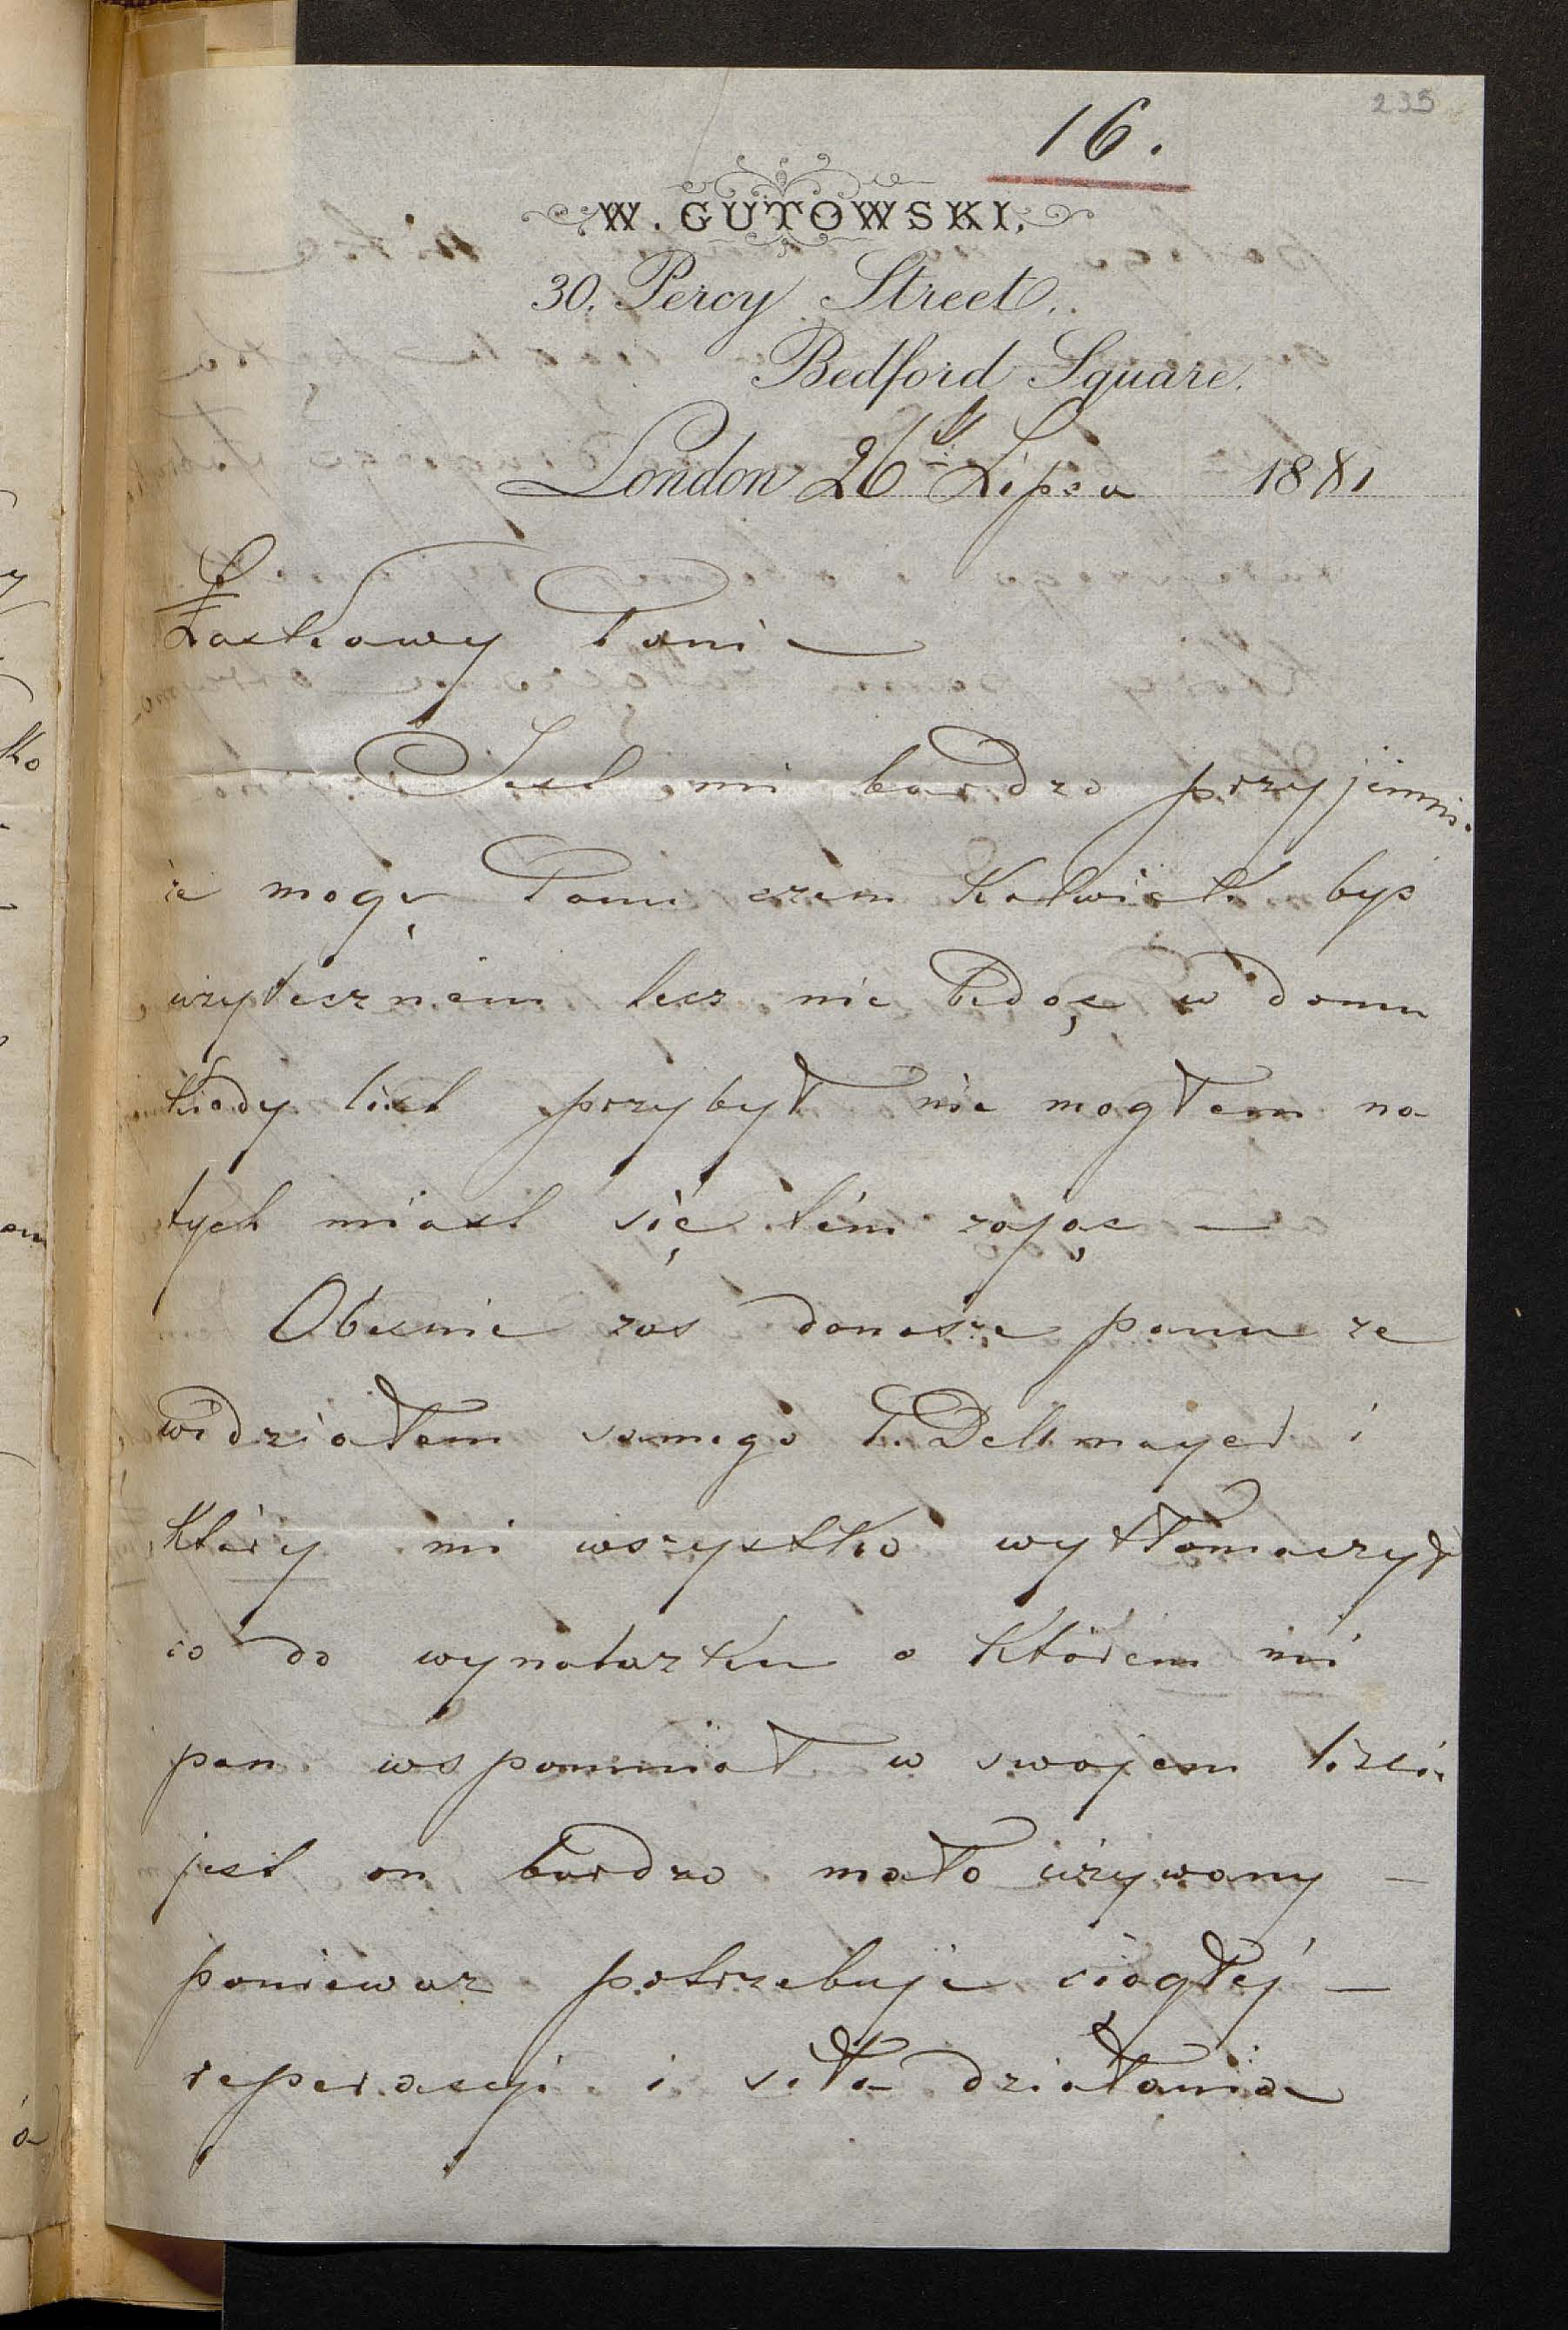 235
16.
W. GUTOWSKI,
30, Percy Street,
Bedford Square.
London 26th Lipca 1881
Łaskawy Panie
Jest mi bardzo przyjemnie
że mogę Panu czem kolwiek byś
użytecznem lecz nie będąc w domu
kiedy list przybył nie mogłem na
tych miast się tém zając —
Obecnie zas donosze panu ze
widziałem samego P. Dellmayer i
który mi wszystko wytłomaczył
co do wynalazku o którem mi
pan wspomniał w swojem liscie
jest on bardzo mało używany —
poniewaz potrzebuje ciągłej —
reperacyi i siła działania